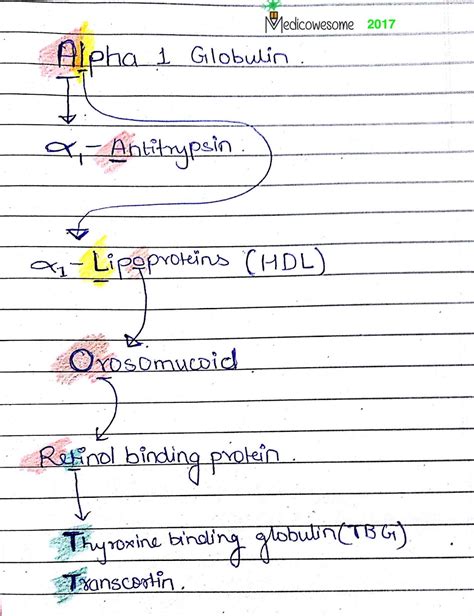 Medicowesome 2017
Alpha 1 Globulin.
α₁- Antitrypsin.
α₁- Lipoproteins (HDL)
Orosomucoid
Retinol binding protein.
Thyroxine binding globulin (TBG)
Transcortin.